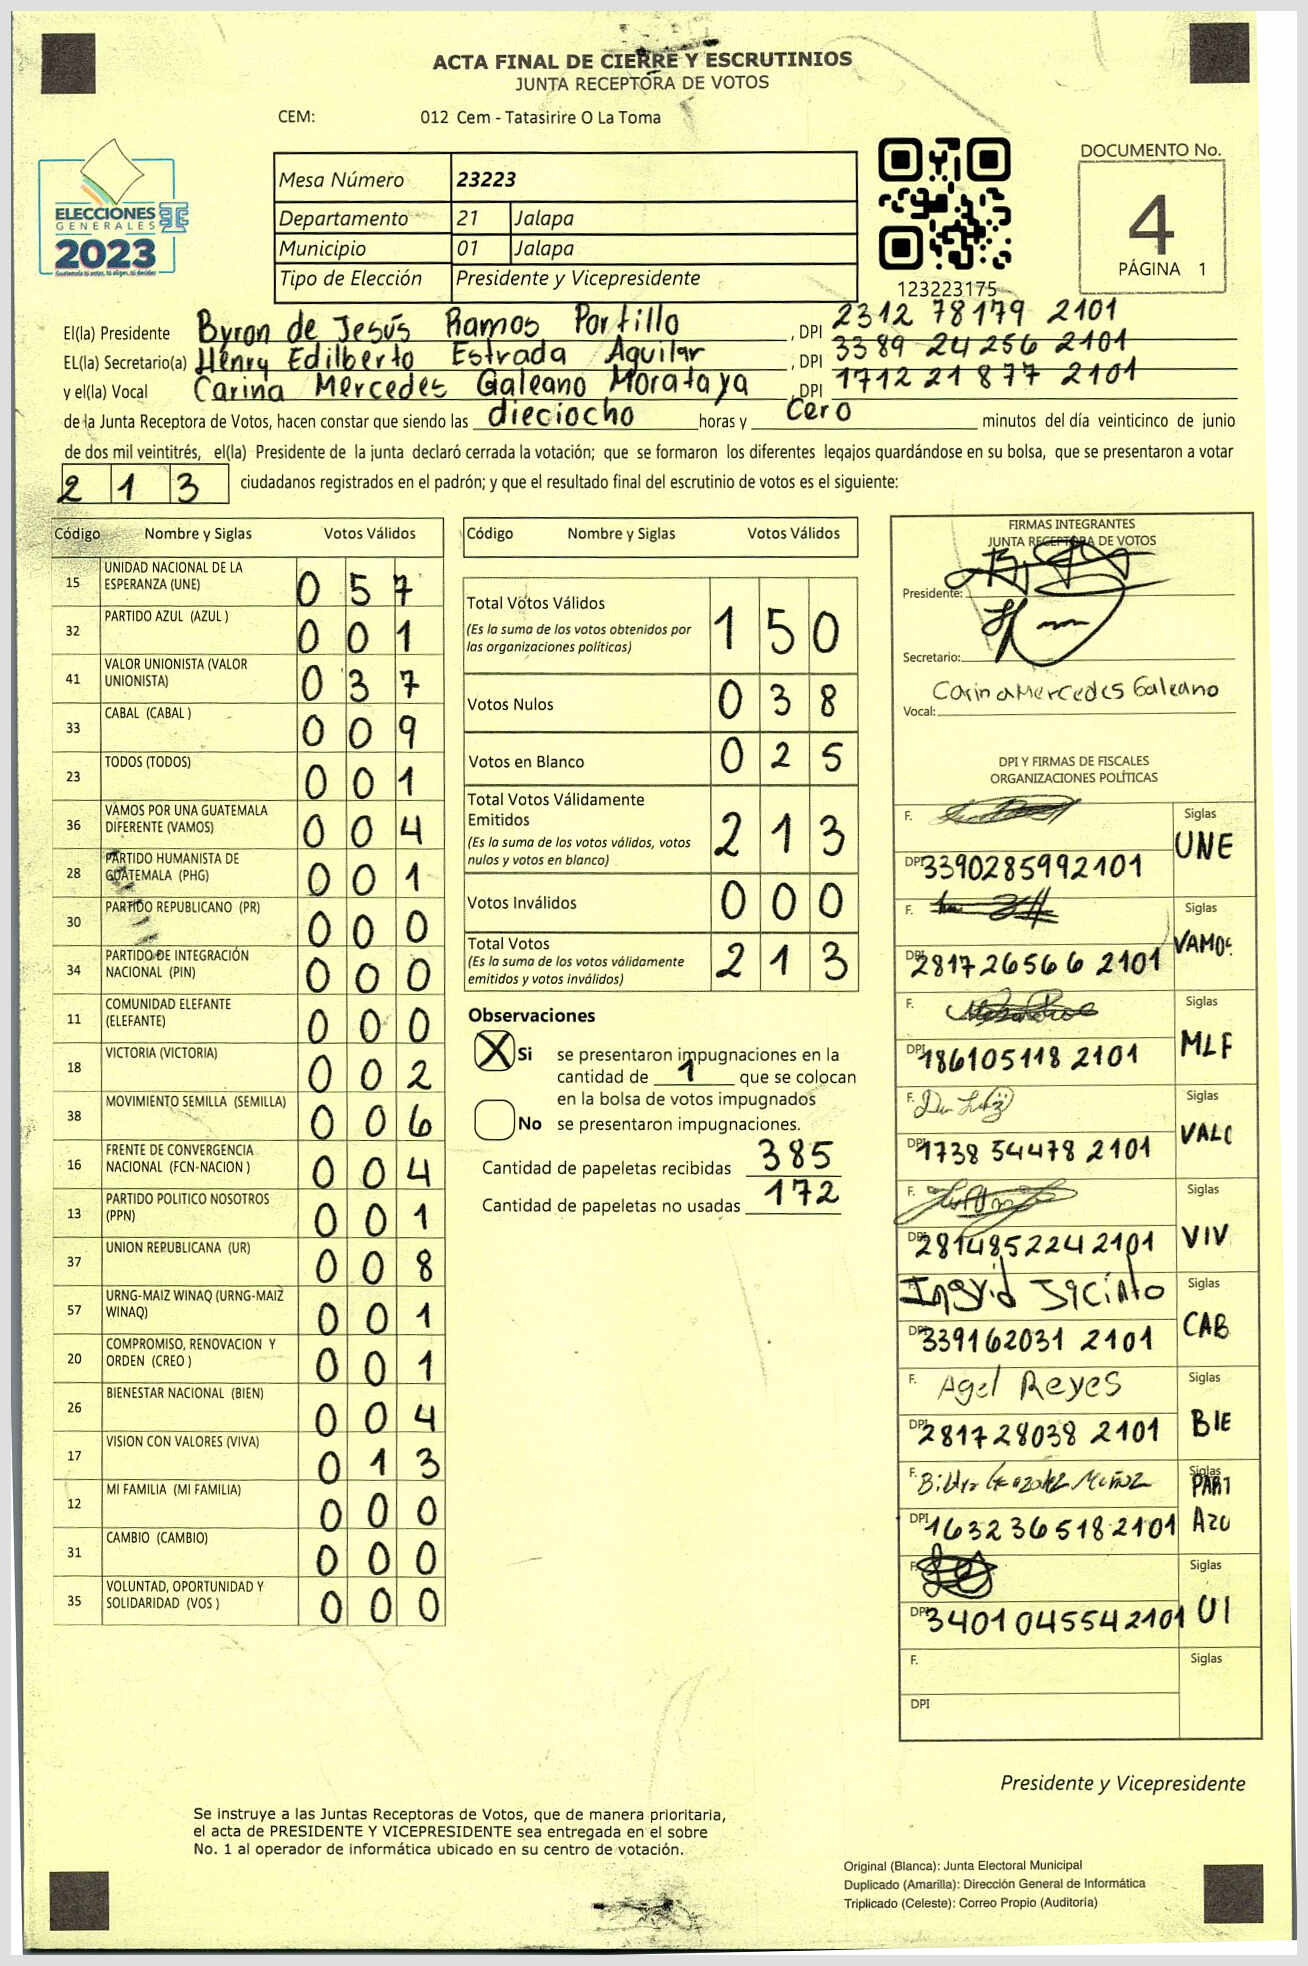 ACTA FINAL DE CIERRE Y ESCRUTINIOS
JUNTA RECEPTORA DE VOTOS
CEM: 012 Cem - Tatasirire O La Toma
ELECCIONES
GENERALES
2023
Mesa Número 23223
Departamento 21 Jalapa
Municipio 01 Jalapa
Tipo de Elección Presidente y Vicepresidente
123223175
DOCUMENTO No.
4
PÁGINA 1
El(la) Presidente Byron de Jesús Ramos Portillo , DPI 2312 78179 2101
EL(la) Secretario(a) Henry Edilberto Estrada Aguilar , DPI 3389 24256 2101
y el(la) Vocal Carina Mercedes Galeano Morataya , DPI 1712 21877 2101
de la Junta Receptora de Votos, hacen constar que siendo las dieciocho horas y Cero minutos del día veinticinco de junio
de dos mil veintitrés, el(la) Presidente de la junta declaró cerrada la votación; que se formaron los diferentes legajos guardándose en su bolsa, que se presentaron a votar
213 ciudadanos registrados en el padrón; y que el resultado final del escrutinio de votos es el siguiente:
Código Nombre y Siglas Votos Válidos
15 UNIDAD NACIONAL DE LA ESPERANZA (UNE) 057
32 PARTIDO AZUL (AZUL ) 001
41 VALOR UNIONISTA (VALOR UNIONISTA) 037
33 CABAL (CABAL ) 009
23 TODOS (TODOS) 001
36 VAMOS POR UNA GUATEMALA DIFERENTE (VAMOS) 004
28 PARTIDO HUMANISTA DE GUATEMALA (PHG) 001
30 PARTIDO REPUBLICANO (PR) 000
34 PARTIDO DE INTEGRACIÓN NACIONAL (PIN) 000
11 COMUNIDAD ELEFANTE (ELEFANTE) 000
18 VICTORIA (VICTORIA) 002
38 MOVIMIENTO SEMILLA (SEMILLA) 006
16 FRENTE DE CONVERGENCIA NACIONAL (FCN-NACION ) 004
13 PARTIDO POLITICO NOSOTROS (PPN) 001
37 UNION REPUBLICANA (UR) 008
57 URNG-MAIZ WINAQ (URNG-MAIZ WINAQ) 001
20 COMPROMISO, RENOVACION Y ORDEN (CREO ) 001
26 BIENESTAR NACIONAL (BIEN) 004
17 VISION CON VALORES (VIVA) 013
12 MI FAMILIA (MI FAMILIA) 000
31 CAMBIO (CAMBIO) 000
35 VOLUNTAD, OPORTUNIDAD Y SOLIDARIDAD (VOS ) 000
Código Nombre y Siglas Votos Válidos
Total Votos Válidos 150
(Es la suma de los votos obtenidos por
las organizaciones políticas)
Votos Nulos 038
Votos en Blanco 025
Total Votos Válidamente
Emitidos 213
(Es la suma de los votos válidos, votos
nulos y votos en blanco)
Votos Inválidos 000
Total Votos 213
(Es la suma de los votos válidamente
emitidos y votos inválidos)
Observaciones
X Si se presentaron impugnaciones en la
cantidad de 1 que se colocan
en la bolsa de votos impugnados
No se presentaron impugnaciones.
Cantidad de papeletas recibidas 385
Cantidad de papeletas no usadas 172
FIRMAS INTEGRANTES
JUNTA RECEPTORA DE VOTOS
Presidente:
Secretario:
Carina Mercedes Galeano
Vocal:
DPI Y FIRMAS DE FISCALES
ORGANIZACIONES POLÍTICAS
F. Siglas UNE
DPI 3390285992101
F. Siglas VAMOS
DPI 2817 26566 2101
F. Siglas MLF
DPI 186105118 2101
F. Siglas VALC
DPI 1738 54478 2101
F. Siglas VIV
DPI 2814852242101
F. Ingrid Jacinto Siglas CAB
DPI 339162031 2101
F. Agel Reyes Siglas BIE
DPI 281728038 2101
F. Siglas PART
DPI 1632365182101 Azu
F. Siglas UI
DPI 3401045542101
F. Siglas
DPI
Presidente y Vicepresidente
Se instruye a las Juntas Receptoras de Votos, que de manera prioritaria,
el acta de PRESIDENTE Y VICEPRESIDENTE sea entregada en el sobre
No. 1 al operador de informática ubicado en su centro de votación.
Original (Blanca): Junta Electoral Municipal
Duplicado (Amarilla): Dirección General de Informática
Triplicado (Celeste): Correo Propio (Auditoría)